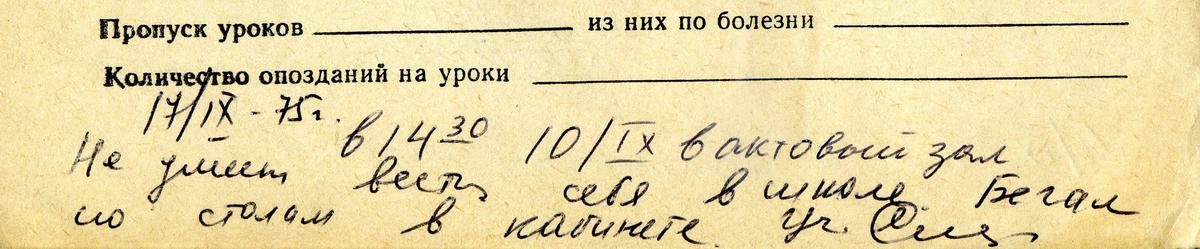 Пропуск уроков из них по болезни
Количество опозданий на уроки
17/IX - 75г.
в 14 30 10/IX в актовый зал
Не умеет вести себя в школе. Бегал
по столам в кабинете. Уч.